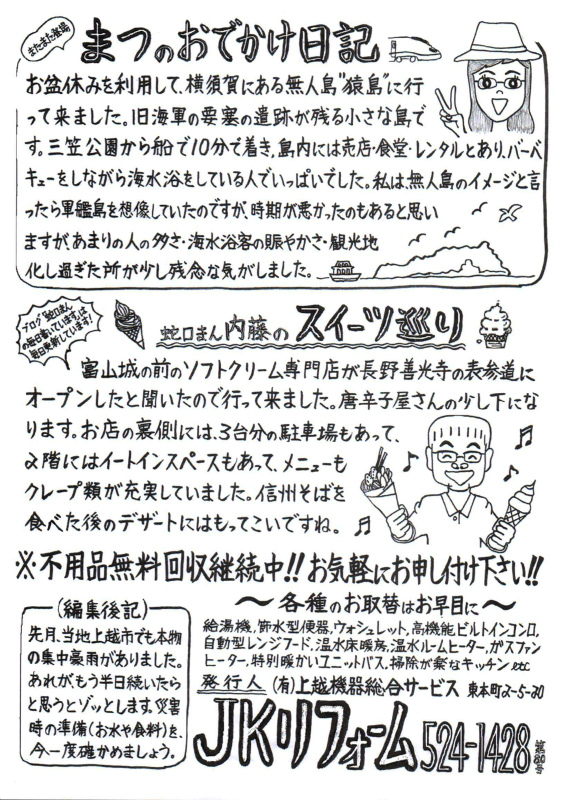 またまた登場
まつのおでかけ日記
お盆休みを利用して、横須賀にある無人島"猿島"に行
って来ました。旧海軍の要塞の遺跡が残る小さな島で
す。三笠公園から船で10分で着き、島内には売店・食堂・レンタルとあり、バーベ
キューをしながら海水浴をしている人でいっぱいでした。私は、無人島のイメージと言
ったら軍艦島を想像していたのですが、時期が悪かったのもあると思い
ますが、あまりの人の多さ・海水浴客の賑やかさ・観光地
化し過ぎた所が少し残念な気がしました。
ブログ"蛇口まん
の毎日書いています"は
毎日更新しています!
蛇口まん内藤のスイーツ巡り
富山城の前のソフトクリーム専門店が長野善光寺の表参道に
オープンしたと聞いたので行って来ました。唐辛子屋さんの少し下にな
ります。お店の裏側には、3台分の駐車場もあって、
2階にはイートインスペースもあって、メニューも
クレープ類が充実していました。信州そばを
食べた後のデザートにはもってこいですね。
※不用品無料回収継続中!!お気軽にお申し付け下さい!!
(編集後記)
先月、当地上越市でも本物
の集中豪雨がありました。
あれが、もう半日続いたら
と思うとゾッとします。災害
時の準備(お水や食料)を、
今一度確かめましょう。
〜各種のお取替はお早目に〜
給湯機,節水型便器,ウォシュレット,高機能ビルトインコンロ,
自動型レンジフード,温水床暖房,温水ルームヒーター,ガスファン
ヒーター,特別暖かいユニットバス,掃除が楽なキッチンetc
発行人 (有)上越機器総合サービス 東本町2-5-20
JKリフォーム 524-1428 第80号